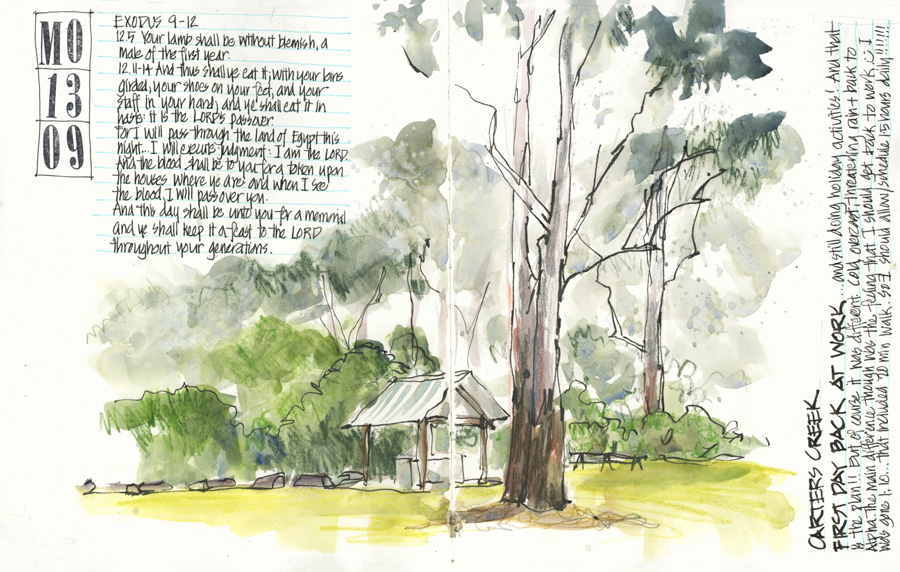 MO
13
09
EXODUS 9-12
12.5 Your lamb shall be without blemish, a
male of the first year.
12.11-14 And thus shall ye eat it; with your loins
girded, your shoes on your feet, and your
staff in your hand; and ye shall eat it in
haste: it is the LORD'S passover.
For I will pass through the land of Egypt this
night... I will execute judgment: I am the LORD.
And the blood shall be to you for a token upon
the houses where ye are: and when I see
the blood, I will pass over you.
And this day shall be unto you for a memorial
and ye shall keep it a feast to the LORD
throughout your generations.
CARTERS CREEK
FIRST DAY BACK AT WORK... and still doing holiday activities! And that
is the plan!! But of course it was different. Cold, overcast, threatening rain + back to
Alpha. The main difference though was the feeling that I should get back to work :) I
was gone 1.10... that included 20 min walk. So I should allow/schedule 1.5 hours daily!!!!!!!